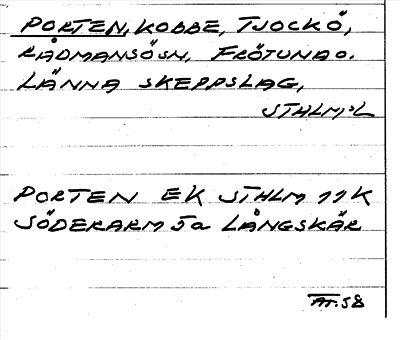 PORTEN, KOBBE, TJOCKÖ,
RÅDMANSÖSN, FRÖTUNA O.
LÄNNA SKEPPSLAG,
STHLM:L
PORTEN EK STHLM 11K
SÖDERARM 5a LÅNGSKÄR
AT.58